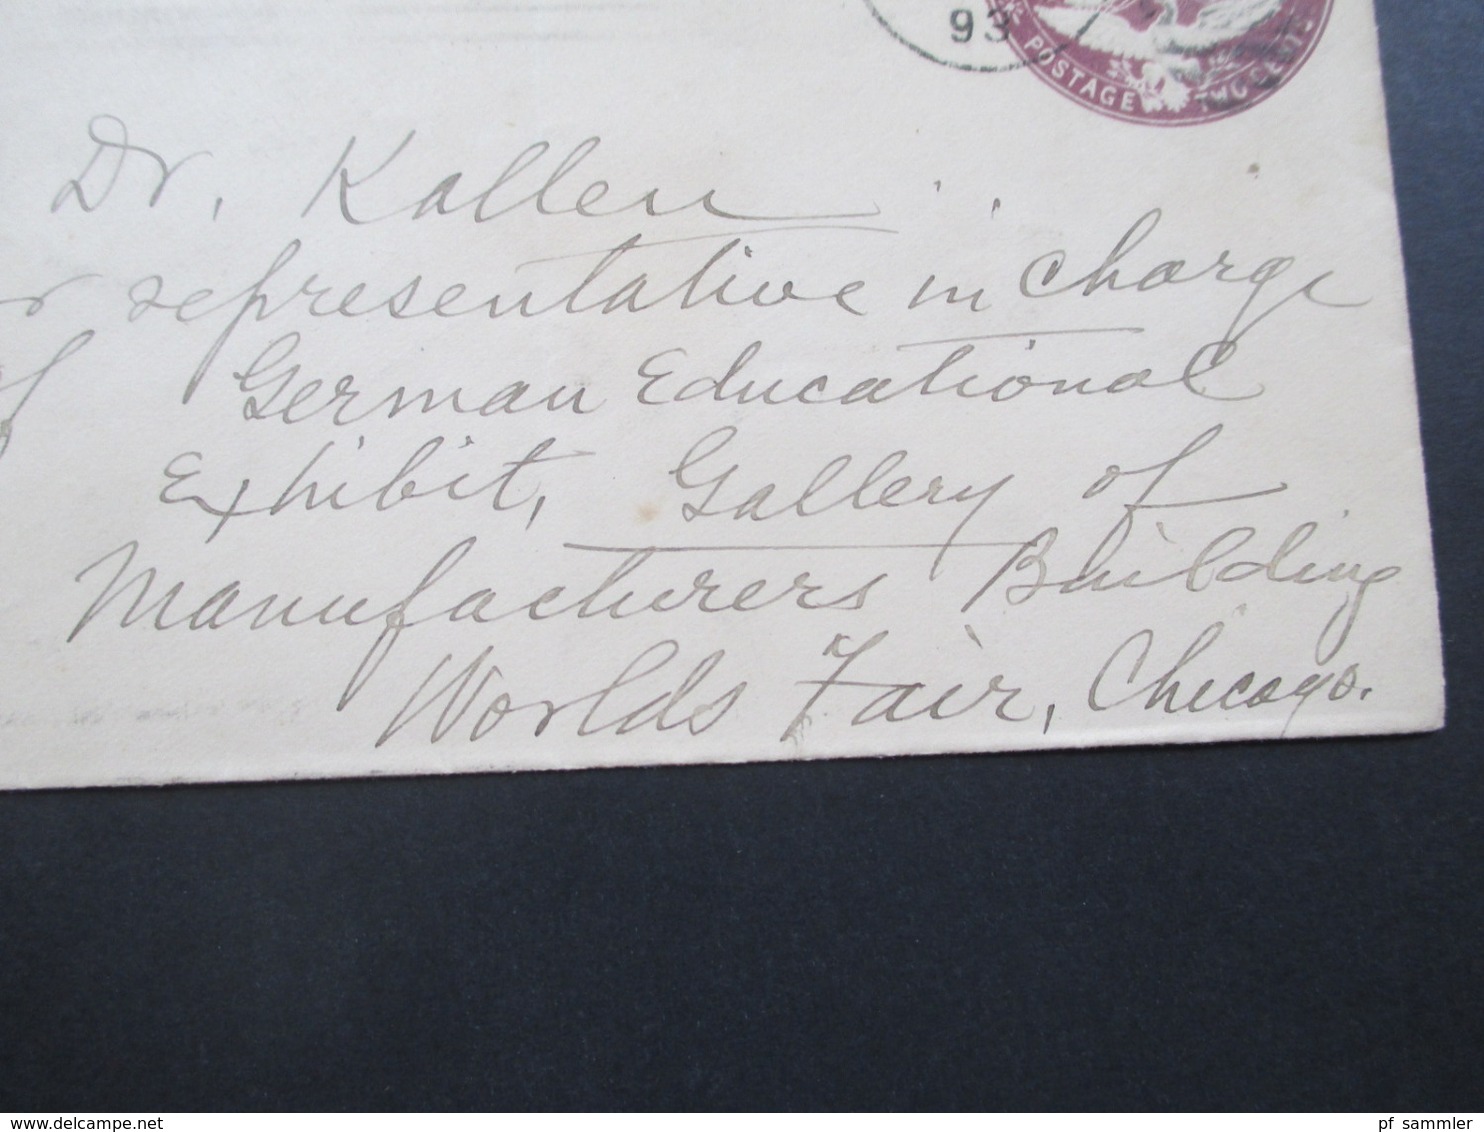 93
POSTAGE TWO CENTS
Dr. Kallen
or representative in charge
of German Educational
Exhibit, Gallery of
Manufacturers Building
Worlds Fair, Chicago.
© delcampe.net
pf_sammler